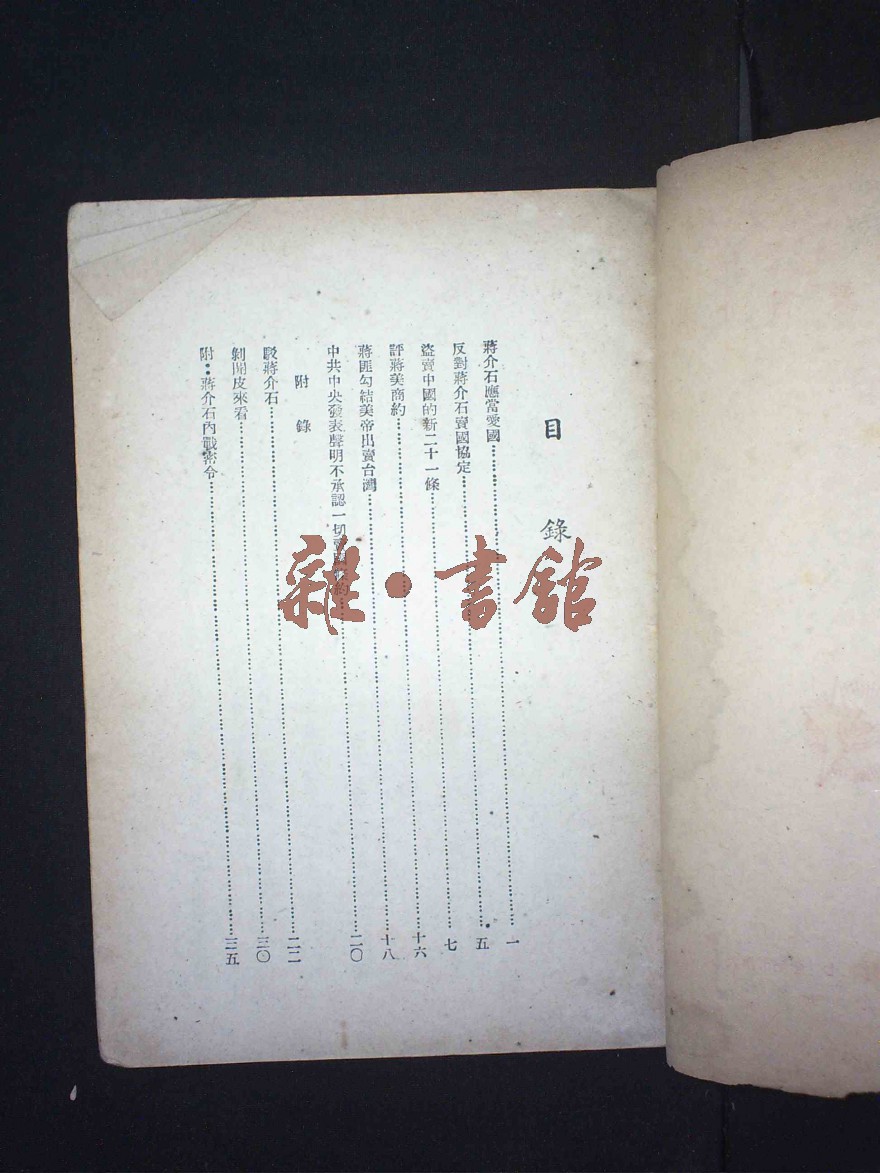 目錄
蔣介石應當愛國……一
反對蔣介石賣國協定……五
盜賣中國的新二十一條……七
評蔣美商約……十六
蔣匪勾結美帝出賣台灣……十八
中共中央發表聲明不承認一切賣國……約……二〇
附錄
駁蔣介石……二二
剝開皮來看……三〇
附：蔣介石內戰密令……三五
雜·書館